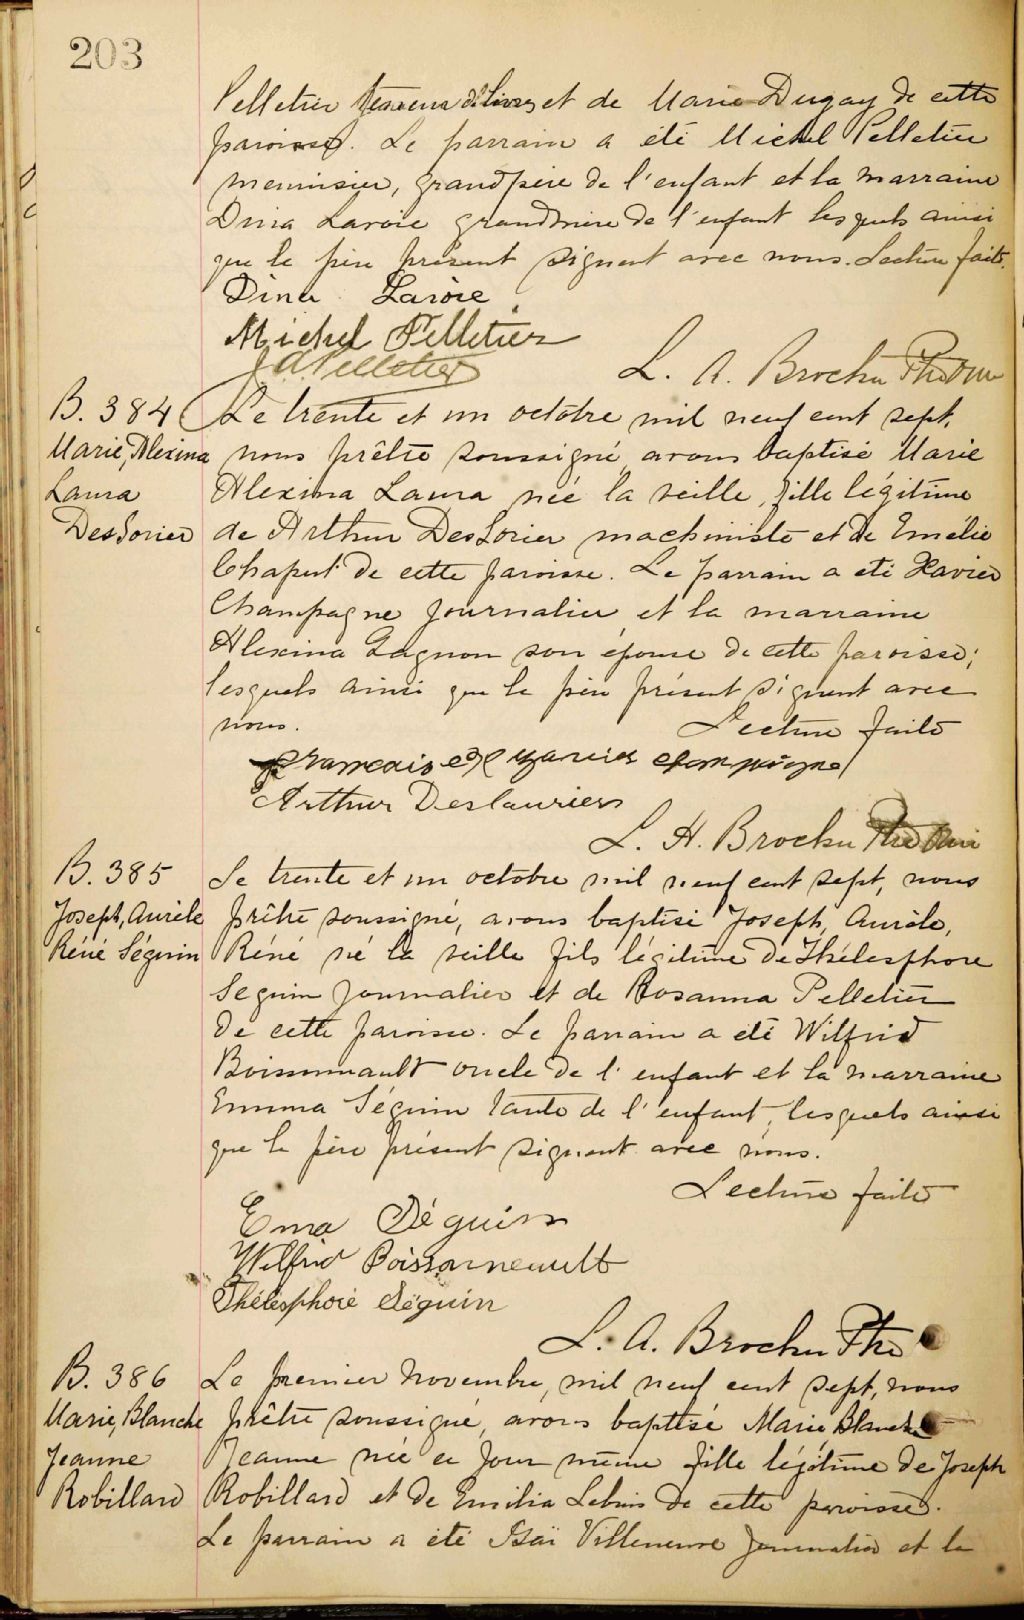 203
Pelletier teneur de livres et de Marie Dugay de cette
paroisse. Le parrain a été Michel Pelletier
menuisier, grandpère de l'enfant et la marraine
Dina Lavoie grandmère de l'enfant lesquels ainsi
que le père présent signent avec nous. Lecture faite.
Dina Lavoie
Michel Pelletier
J A Pelletier
L. A. Brochu Ptre
B. 384
Marie, Alexina
Laura
DesLorier
Le trente et un octobre mil neuf cent sept,
nous prêtre soussigné avons baptisé Marie
Alexina Laura née la veille, fille légitime
de Arthur DesLorier machiniste et de Emélie
Chaput de cette paroisse. Le parrain a été Xavier
Champagne journalier et la marraine
Alexina Gagnon son épouse de cette paroisse;
lesquels ainsi que le père présent signent avec
nous. Lecture faite
Arthur Deslauriers
L. A. Brochu Ptre
B. 385
Joseph, Aurèle
Réné Séguin
Le trente et un octobre mil neuf cent sept, nous
prêtre soussigné, avons baptisé Joseph, Aurèle,
Réné né la veille fils légitime de Thélesphore
Seguin journalier et de Rosanna Pelletier
de cette paroisse. Le parrain a été Wilfrid
Boissonnault oncle de l'enfant et la marraine
Emma Séguin tante de l'enfant, lesquels ainsi
que le père présent signent avec nous.
Lecture faite
Ema Séguin
Wilfrid Boissonneault
Thélesphore Séguin
L. A. Brochu Ptre
B. 386
Marie, Blanche
Jeanne
Robillard
Le premier Novembre, mil neuf cent sept, nous
prêtre soussigné, avons baptisé Marie Blanche
Jeanne née ce jour même fille légitime de Joseph
Robillard et de Emilia Lebuis de cette paroisse.
Le parrain a été Isaï Villeneuve journalier et la